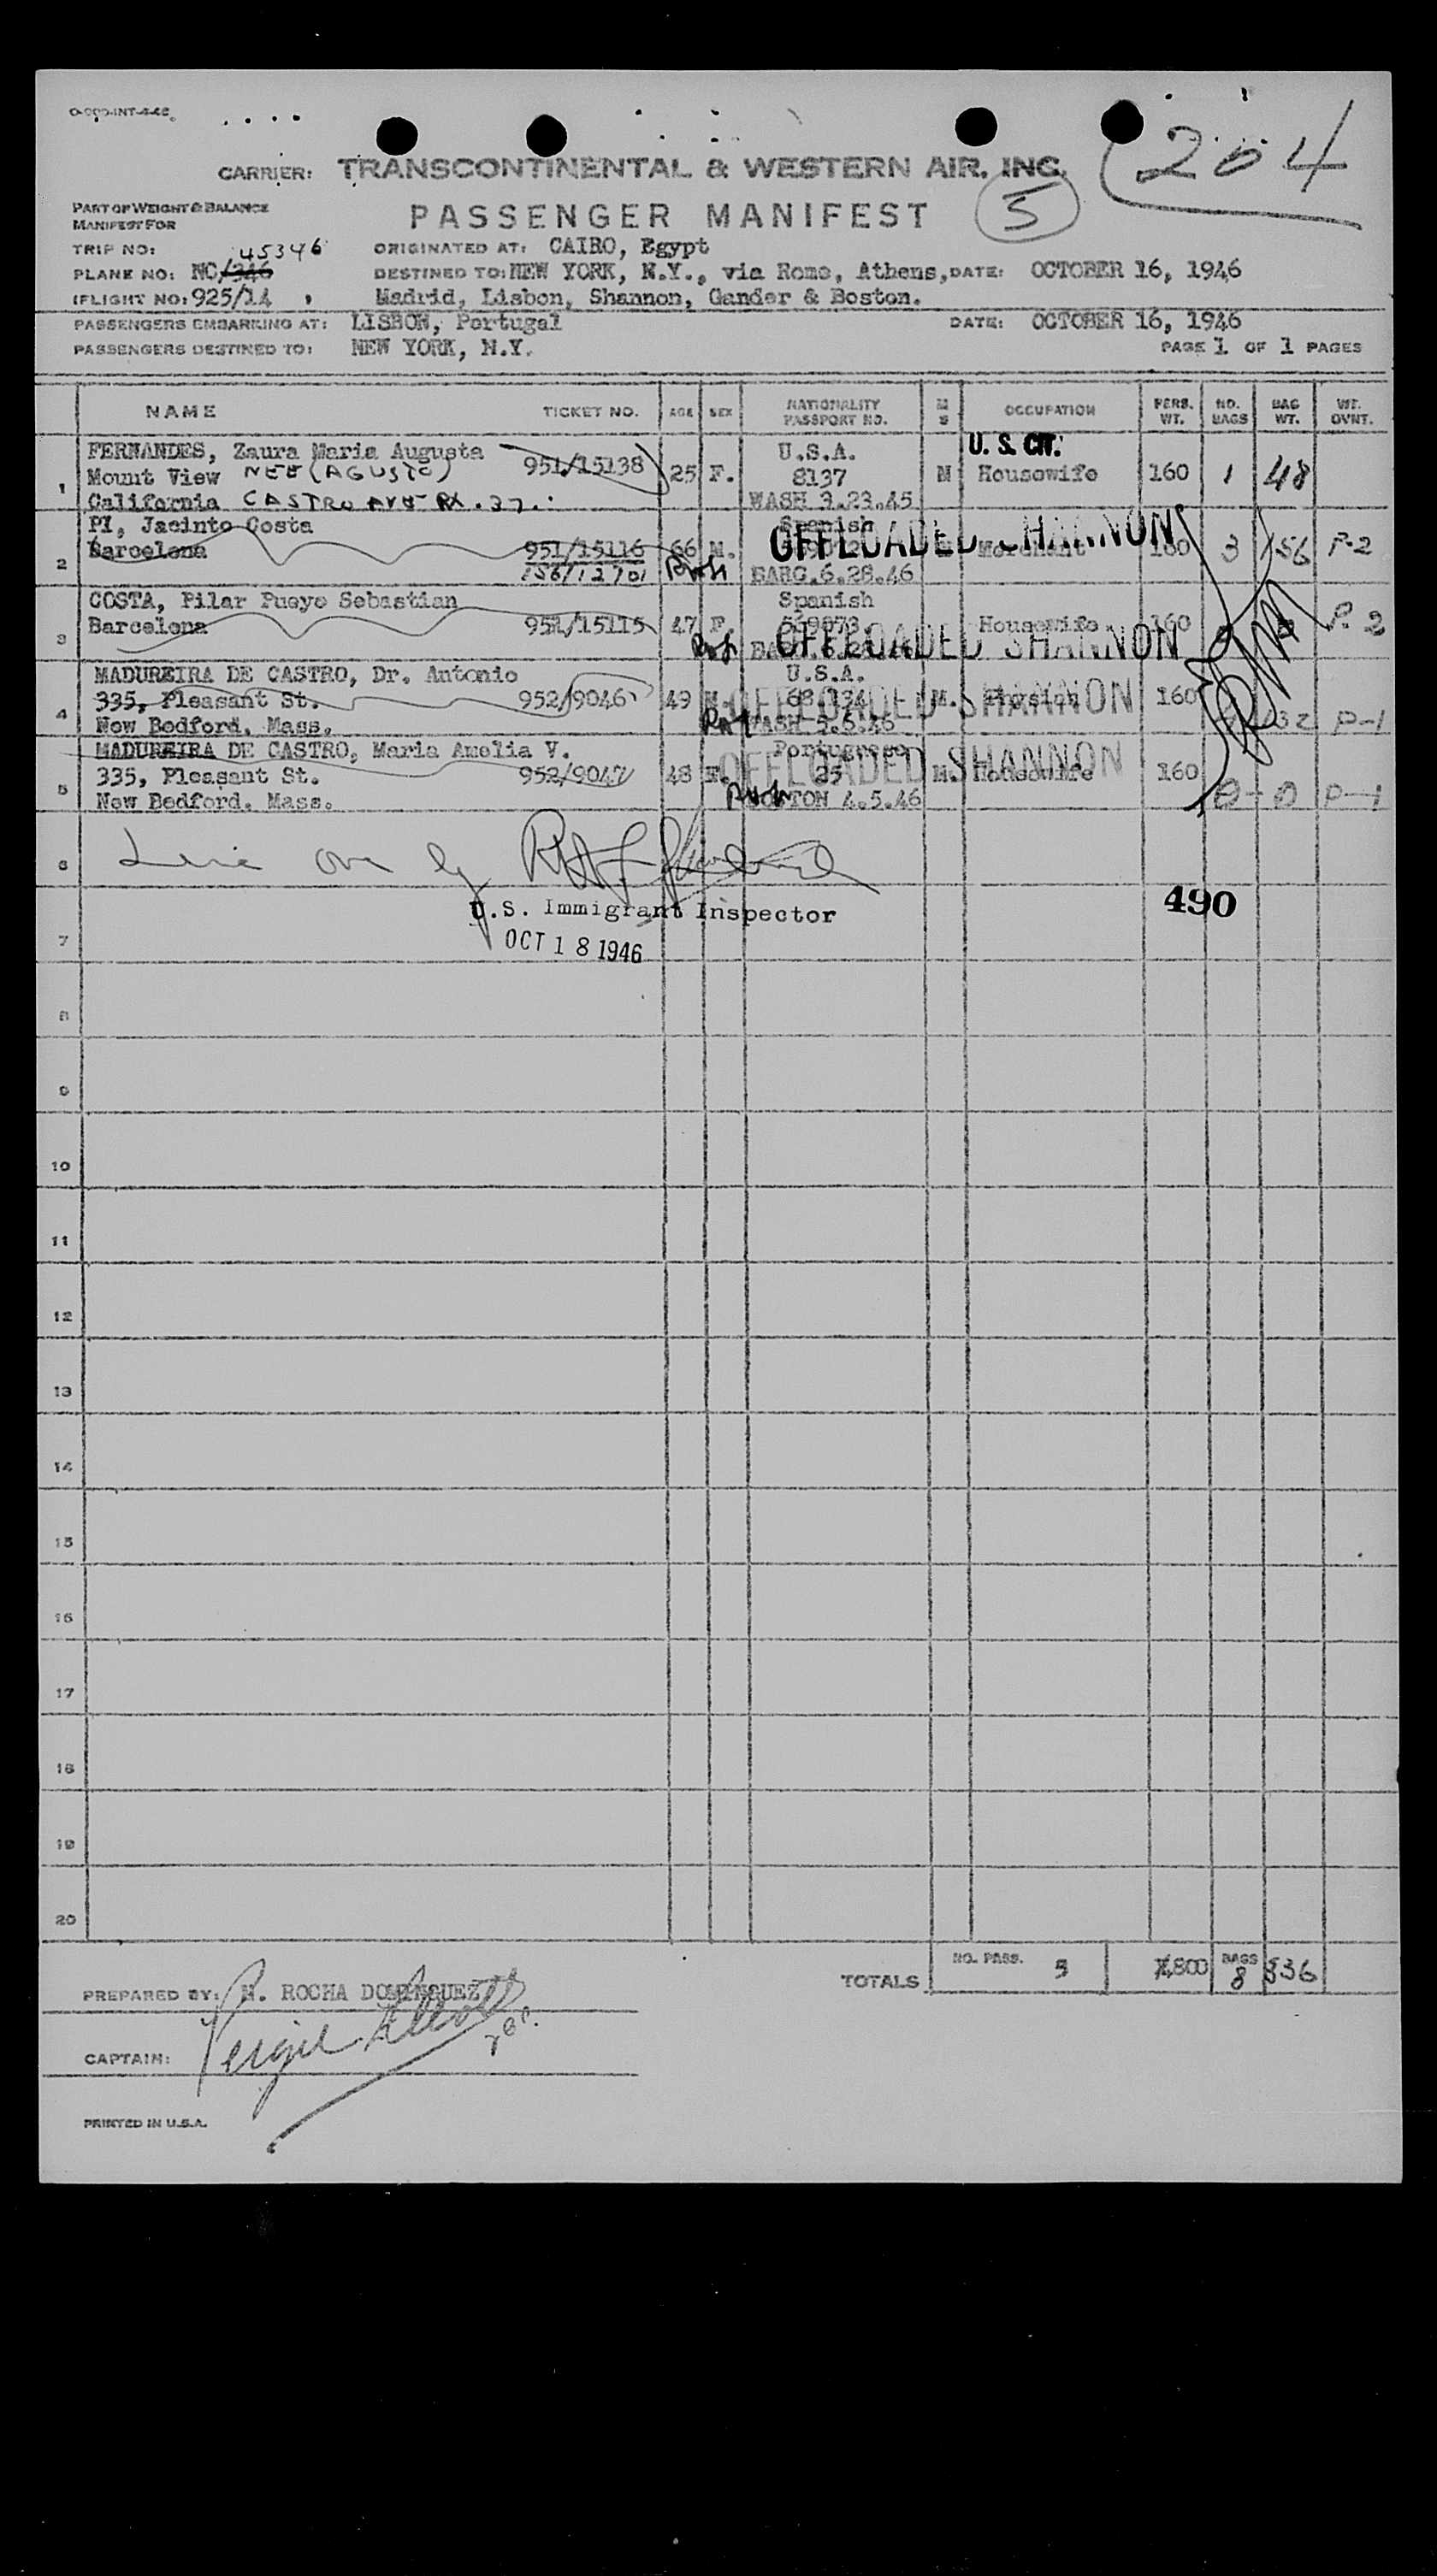 CARRIER: TRANSCONTINENTAL & WESTERN AIR. INC.
264
5
PASSENGER MANIFEST
PART OF WEIGHT & BALANCE
MANIFEST FOR
TRIP NO: 45346
ORIGINATED AT: CAIRO, Egypt
PLANE NO: NC/346
DESTINED TO: NEW YORK, N.Y., via Rome, Athens, DATE: OCTOBER 16, 1946
(FLIGHT NO: 925/14
Madrid, Lisbon, Shannon, Gander & Boston.
PASSENGERS EMBARKING AT: LISBON, Portugal DATE: OCTOBER 16, 1946
PASSENGERS DESTINED TO: NEW YORK, N.Y. PAGE 1 OF 1 PAGES
NAME TICKET NO. AGE SEX NATIONALITY PASSPORT NO. M S OCCUPATION PERS. WT. NO. BAGS BAG WT. WT. OVNT.
FERNANDES, Zaura Maria Augusta U.S.A. U. S. CIT.
1 Mount View NEE (AGUSTO) 951/15138 25 F. 8137 M Housewife 160 1 48
California CASTRO AVE RX. 37. WASH 3.23.45
PI, Jacinto Costa Spanish OFFLOADED SHANNON
2 Barcelona 951/15116 66 M. Merchant 160 3 156 P-2
156/12701 BARC.6.28.46
COSTA, Pilar Pueyo Sebastian Spanish
3 Barcelona 951/15115 47 F. Housewife 160 P-2
OFFLOADED SHANNON
MADUREIRA DE CASTRO, Dr. Antonio U.S.A.
4 335, Pleasant St. 952/9046 49 M. M. 160 P-1
OFFLOADED SHANNON
New Bedford. Mass. WASH 5.6.46
MADUREIRA DE CASTRO, Maria Amelia V. Portuguese
5 335, Pleasant St. 952/9047 48 F. 25 M. Housewife 160 0 0 P-1
OFFLOADED SHANNON
New Bedford. Mass. BOSTON 4.5.46
6
U.S. Immigrant Inspector
490
7 OCT 18 1946
8
9
10
11
12
13
14
15
16
17
18
19
20
TOTALS NO. PASS. 5 800 BAGS 8 336
PREPARED BY: N. ROCHA DOMINGUEZ
CAPTAIN:
PRINTED IN U.S.A.